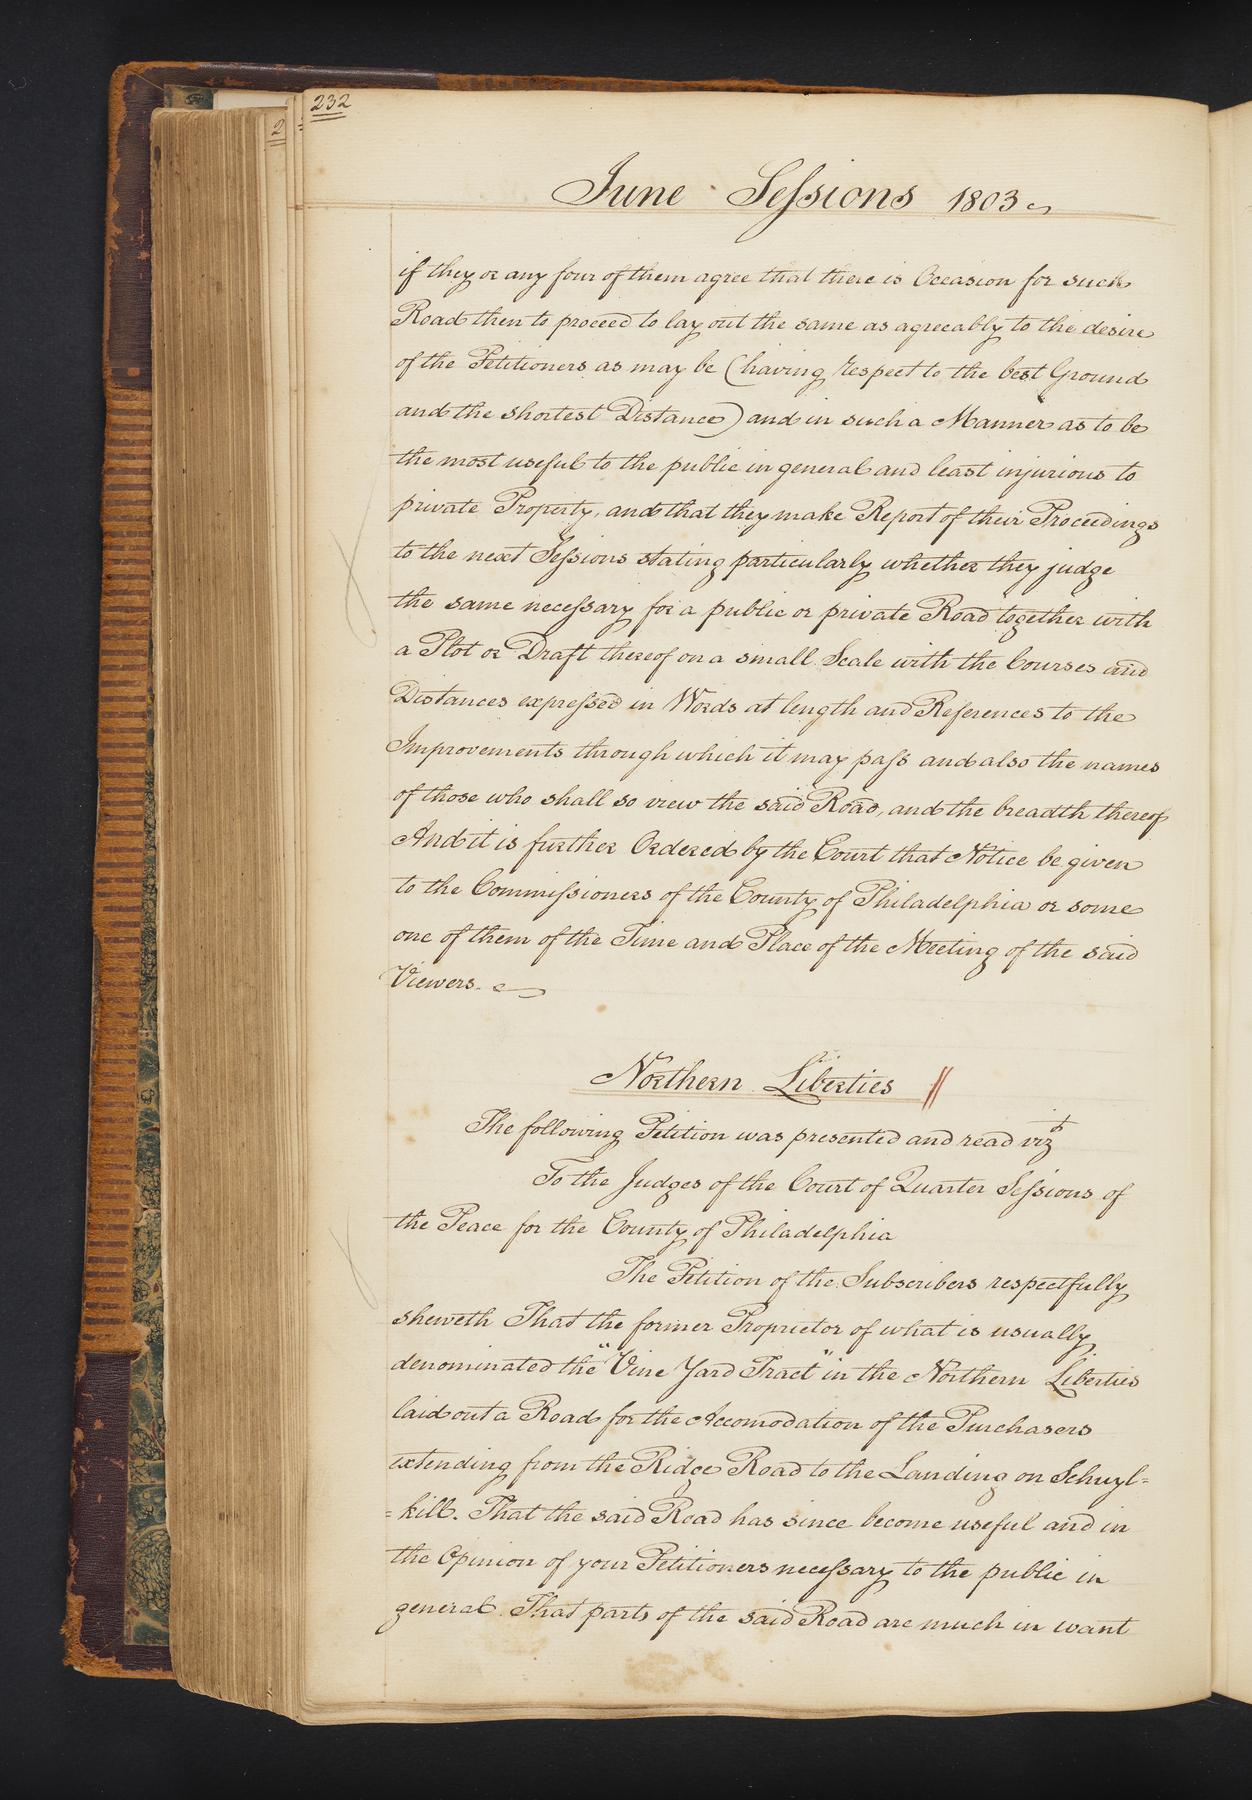 232
2
June Sessions 1803
if they or any four of them agree that there is Occasion for such
Road then to proceed to lay out the same as agreeably to the desire
of the Petitioners as may be (having respect to the best Ground
and the shortest Distance) and in such a Manner as to be
the most useful to the public in general and least injurious to
private Property, and that they make Report of their Proceedings
to the next Sessions stating particularly whether they judge
the same necessary for a public or private Road together with
a Plot or Draft thereof on a small Scale with the Courses and
Distances expressed in Words at length and References to the
Improvements through which it may pass and also the names
of those who shall so view the said Road, and the breadth thereof
And it is further Ordered by the Court that Notice be given
to the Commissioners of the County of Philadelphia or some
one of them of the Time and Place of the Meeting of the said
Viewers.
Northern Liberties //
The following Petition was presented and read vizt
To the Judges of the Court of Quarter Sessions of
the Peace for the County of Philadelphia
The Petition of the Subscribers respectfully
sheweth That the former Proprietor of what is usually
denominated the "Vine Yard Tract" in the Northern Liberties
laid out a Road for the Accomodation of the Purchasers
extending from the Ridge Road to the Landing on Schuyl=
=kill. That the said Road has since become useful and in
the Opinion of your Petitioners necessary to the public in
general. That parts of the said Road are much in want